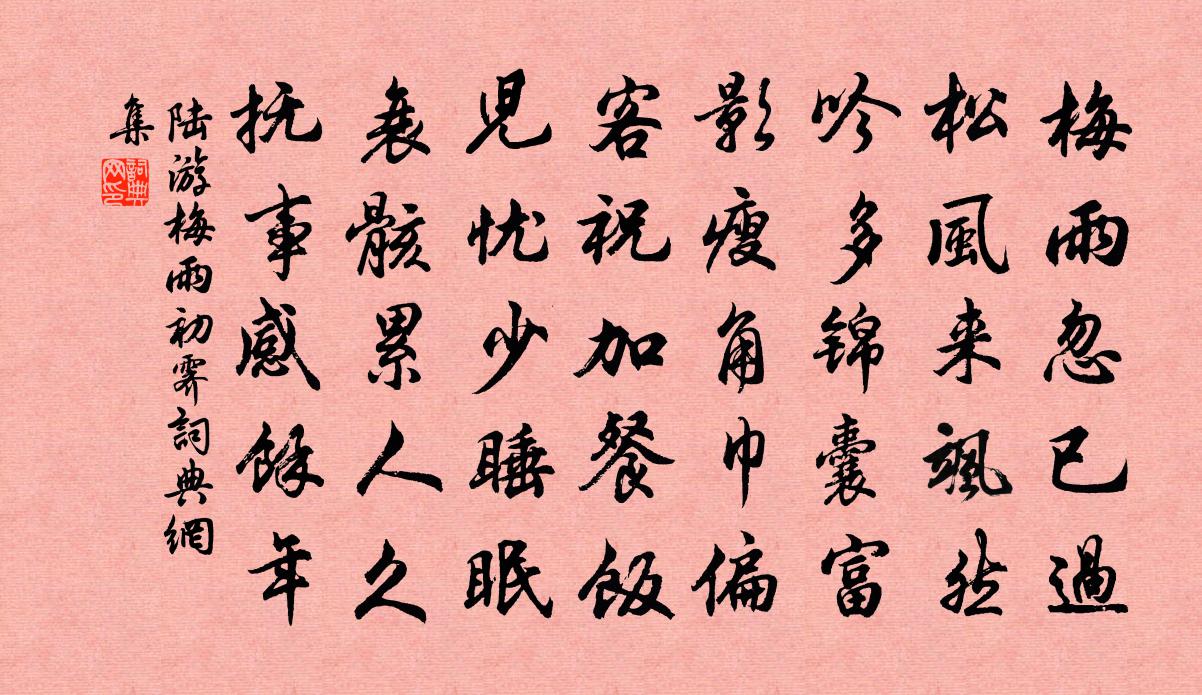 梅雨忽已過
松風来颯然
吟多锦囊富
影瘦角巾偏
客祝加餐飯
児忧少睡眠
衰骸累人久
抚事感餘年
陆游梅雨初霁詞典網
集
詞典网印